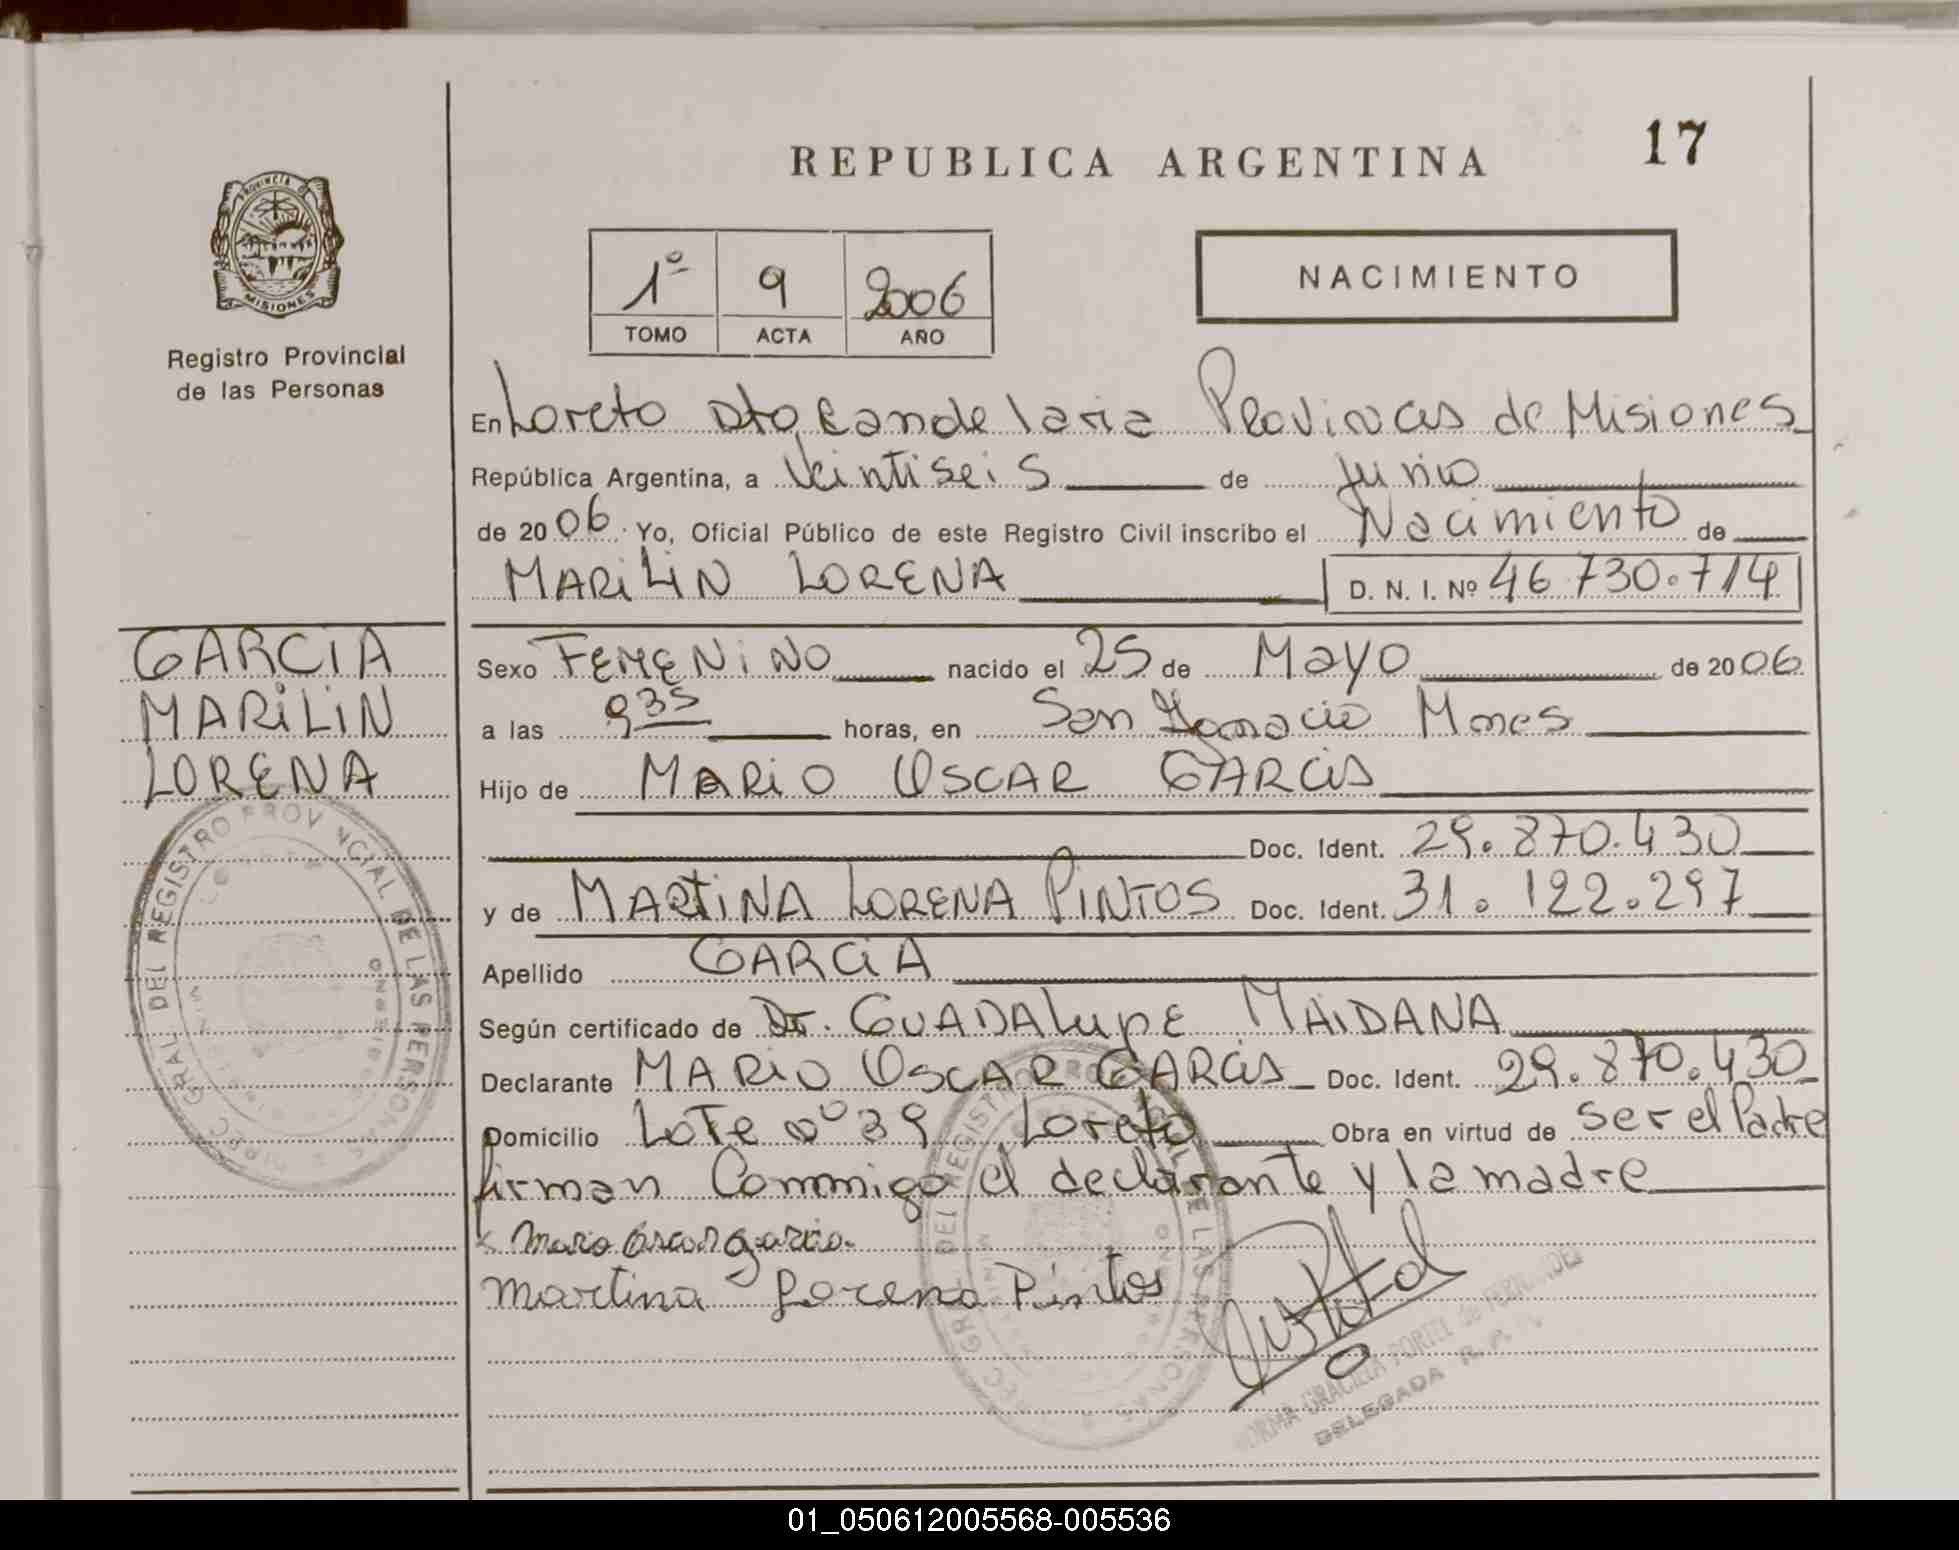 REPUBLICA ARGENTINA
17
PROVINCIA DE
MISIONES
Registro Provincial
de las Personas
1º 9 2006
TOMO ACTA AÑO
NACIMIENTO
En Loreto Dto Candelaria Provincias de Misiones
República Argentina, a Veintiseis de Junio
de 2006 Yo, Oficial Público de este Registro Civil inscribo el Nacimiento de
MARiLiN LORENA D. N. I. Nº 46.730.714
GARCIA
MARiLiN
LORENA
Sexo FEMENiNO nacido el 25 de Mayo de 2006
a las 9 35 horas, en San Ignacio Mnes
Hijo de MARiO OSCAR GARCiA
Doc. Ident. 29.870.430
y de MARTiNA LORENA PiNTOS Doc. Ident. 31.122.297
Apellido GARCiA
Según certificado de Dr. GUADALupE MAiDANA
Declarante MARiO OSCAR GARCiA Doc. Ident. 29.870.430
Domicilio LoTe nº 39 Loreto Obra en virtud de ser el Padre
firman Commigo el declarante y la madre
Mario Oscar garcia.
Martina Lorena Pintos
DIREC GRAL DEL REGISTRO PROVINCIAL DE LAS PERSONAS
DIREC GRAL DEL REGISTRO PROVINCIAL DE LAS PERSONAS
NORMA GRACIELA PORTEL de FERNANDEZ
DELEGADA R.P.P.
01_050612005568-005536